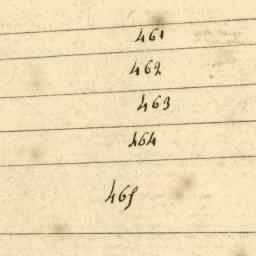 461
462
463
464
465